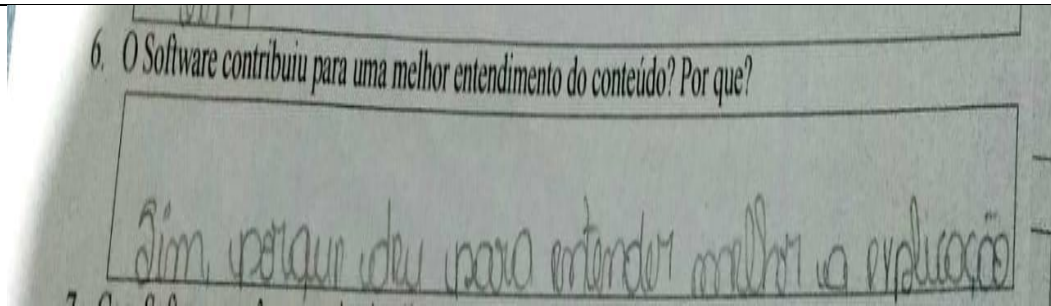 6. O Software contribuiu para uma melhor entendimento do conteúdo? Por que?
Sim, porque deu para entender melhor a explicação